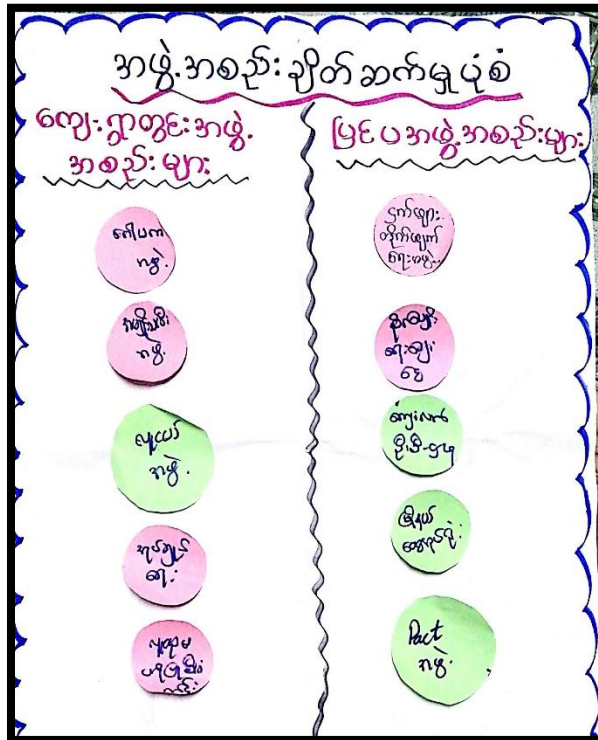 အဖွဲ့အစည်းချိတ်ဆက်မှုပုံစံ
ကျေးရွာတွင်းအဖွဲ့
အစည်းများ
ဂေါပက
အဖွဲ့
အမျိုးသမီး
အဖွဲ့
လူငယ်
အဖွဲ့
အုပ်ချုပ်
ရေး
လူထုမှ
ပြင်ပအဖွဲ့အစည်းများ
ငှက်ဖျား
တိုက်ဖျက်
ရေးအဖွဲ့
စိုက်ပျိုး
ရေးချေး
ငွေ
ကျေးလက်
ဦးစီးဌာန
မြို့နယ်
Pact
အဖွဲ့